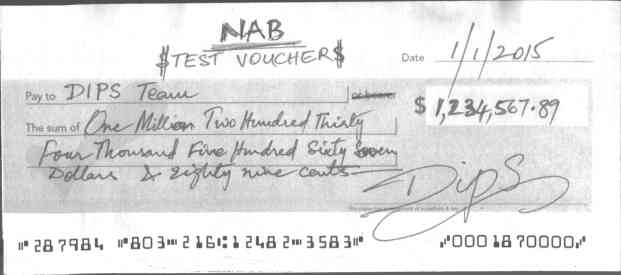 NAB
$TEST VOUCHER$
Date 1/1/2015
Pay to DIPS Team or bearer
The sum of One Million Two Hundred Thirty
$ 1,234,567.89
Four Thousand Five Hundred Sixty Seven
Dollars & Eighty nine cents
DipS
287984 803 216:12482 3583 0001870000